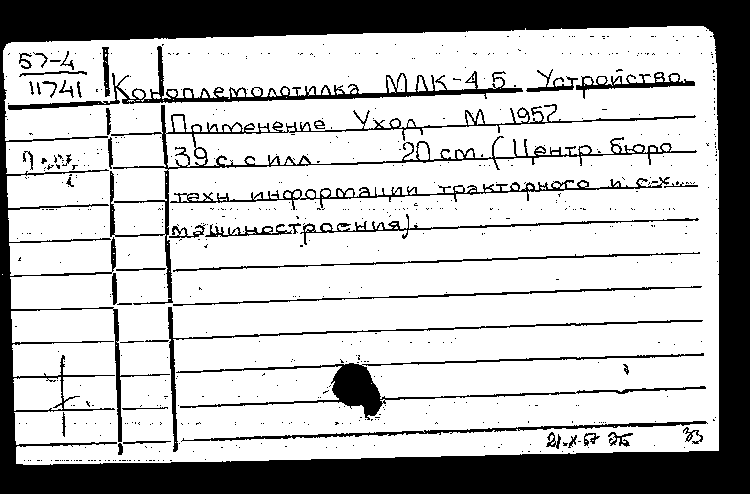 57-4
11741
Коноплемолотилка МЛК-4,5. Устройство.
Применение. Уход. М., 1957.
39 с. с илл. 20 см. (Центр. бюро
техн. информации тракторного и с.-х.
машиностроения).
21-X-57
33